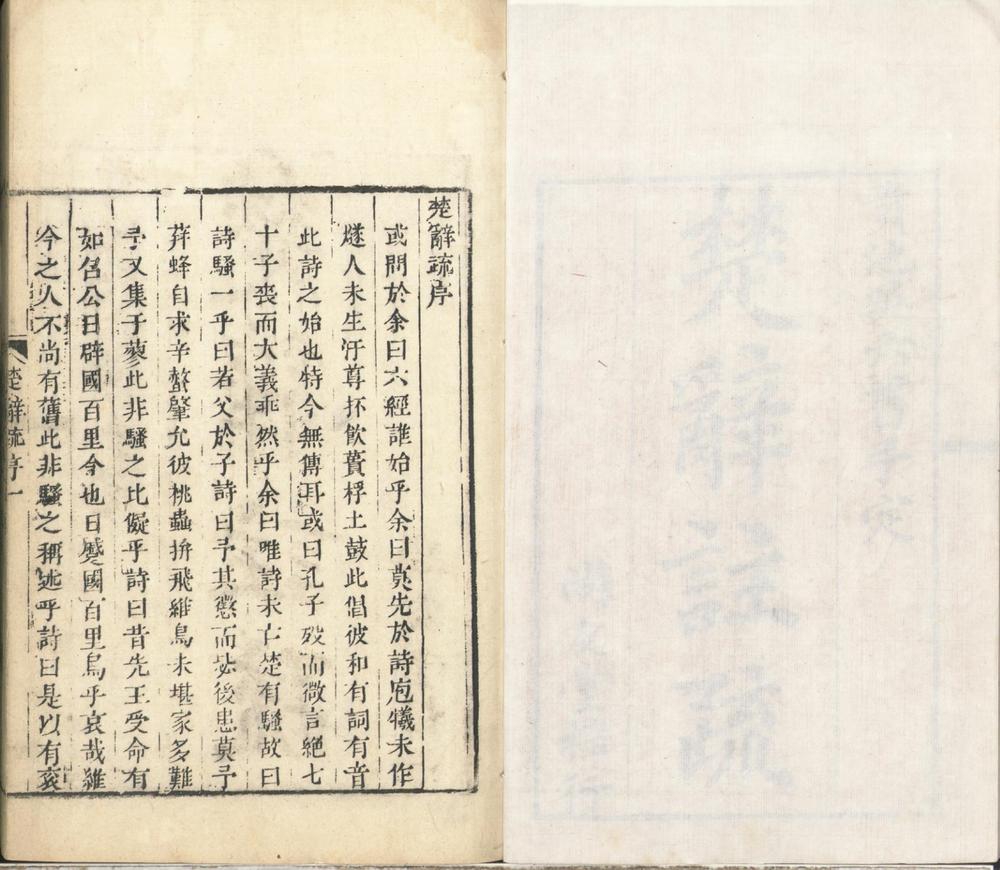 楚辭註疏
行
楚辭疏序
或問於余曰六經誰始乎余曰莫先於詩庖犧未作
燧人未生汙尊抔飲蕢桴土鼓此倡彼和有詞有音
此詩之始也特今無傳耳或曰孔子歿而微言絕七
十子喪而大義乖然乎余曰唯詩未亡楚有騷故曰
詩騷一乎曰若父於子詩曰予其懲而毖後患莫予
荓蜂自求辛螫肇允彼桃蟲拚飛維鳥未堪家多難
予又集于蓼此非騷之比儗乎詩曰昔先王受命有
如召公日辟國百里今也日蹙國百里烏乎哀哉維
今之人不尚有舊此非騷之稱述乎詩曰是以有袞
楚辭疏序 一